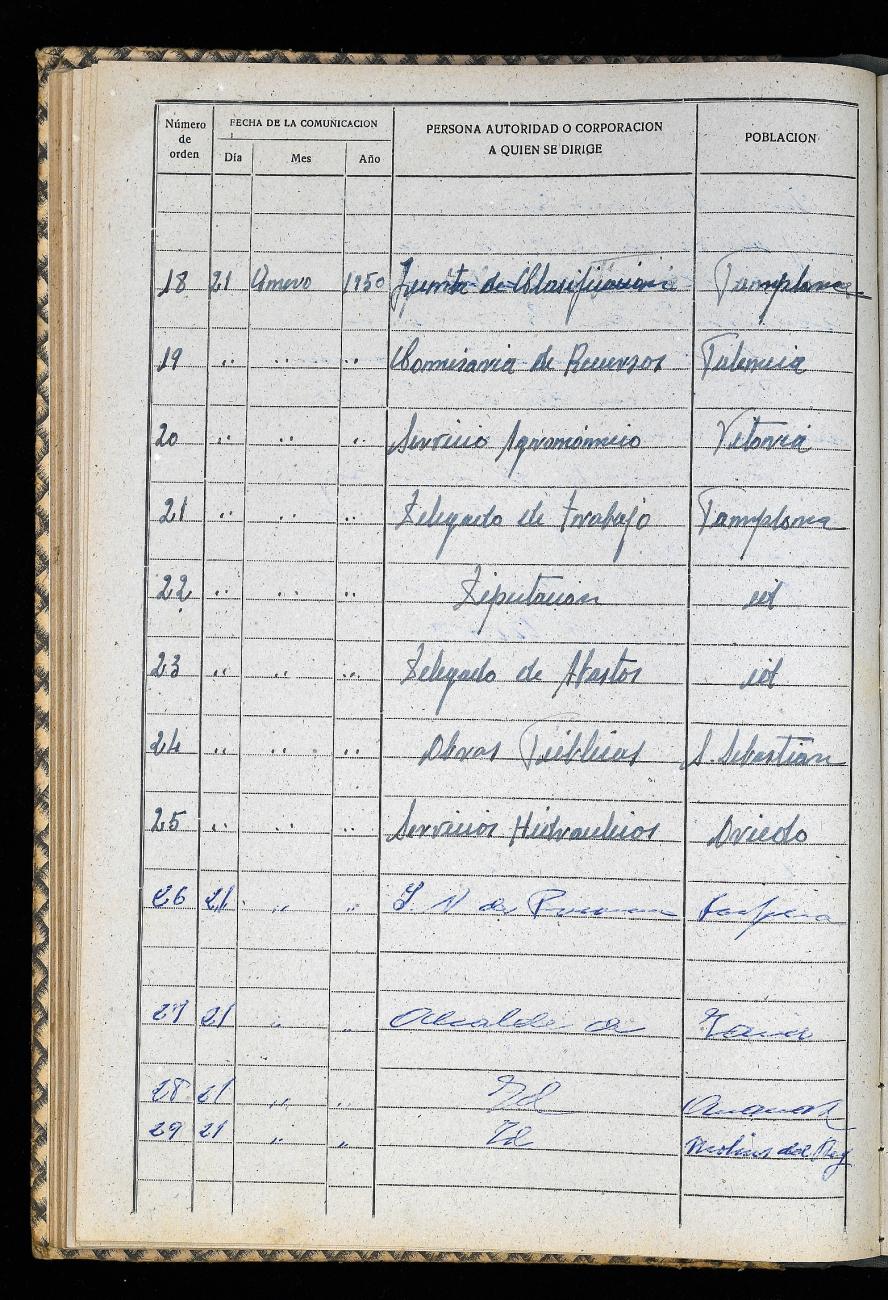 Número de orden FECHA DE LA COMUNICACION PERSONA AUTORIDAD O CORPORACION A QUIEN SE DIRIGE POBLACION
Día Mes Año
18 21 Enero 1950 Junta de Clasificación Pamplona
19 " " " Comisaria de Recursos Palencia
20 " " " Servicio Agronómico Vitoria
21 " " " Delegado de Trabajo Pamplona
22 " " " Diputacion id
23 " " " Delegado de Abastos id
24 " " " Obras Públicas S. Sebastian
25 " " " Servicios Hidraulicos Oviedo
26 21 " " de
27 21 " " Alcalde de
28 21 " " Id
29 21 " " Id Molins del Rey